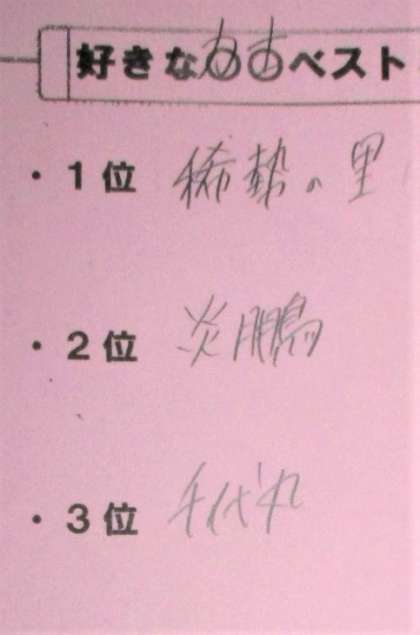 好きな力士ベスト
・1位 稀勢の里
・2位 炎鵬
・3位 千代丸